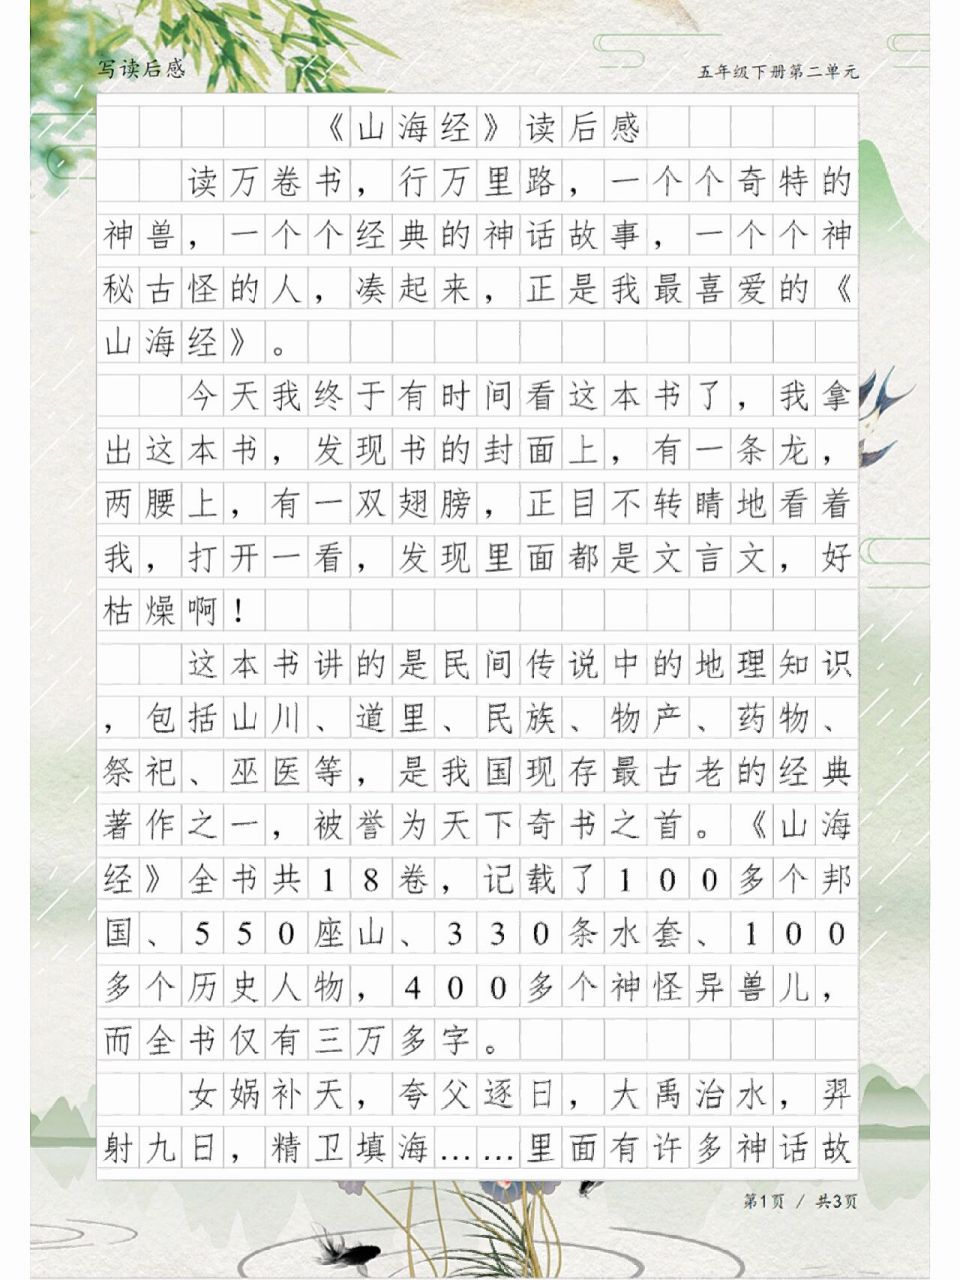 写读后感
五年级下册第二单元
《山海经》读后感
读万卷书，行万里路，一个个奇特的
神兽，一个个经典的神话故事，一个个神
秘古怪的人，凑起来，正是我最喜爱的《
山海经》。
今天我终于有时间看这本书了，我拿
出这本书，发现书的封面上，有一条龙，
两腰上，有一双翅膀，正目不转睛地看着
我，打开一看，发现里面都是文言文，好
枯燥啊！
这本书讲的是民间传说中的地理知识
，包括山川、道里、民族、物产、药物、
祭祀、巫医等，是我国现存最古老的经典
著作之一，被誉为天下奇书之首。《山海
经》全书共18卷，记载了100多个邦
国、550座山、330条水套、100
多个历史人物，400多个神怪异兽儿，
而全书仅有三万多字。
女娲补天，夸父逐日，大禹治水，羿
射九日，精卫填海……里面有许多神话故
第1页 / 共3页